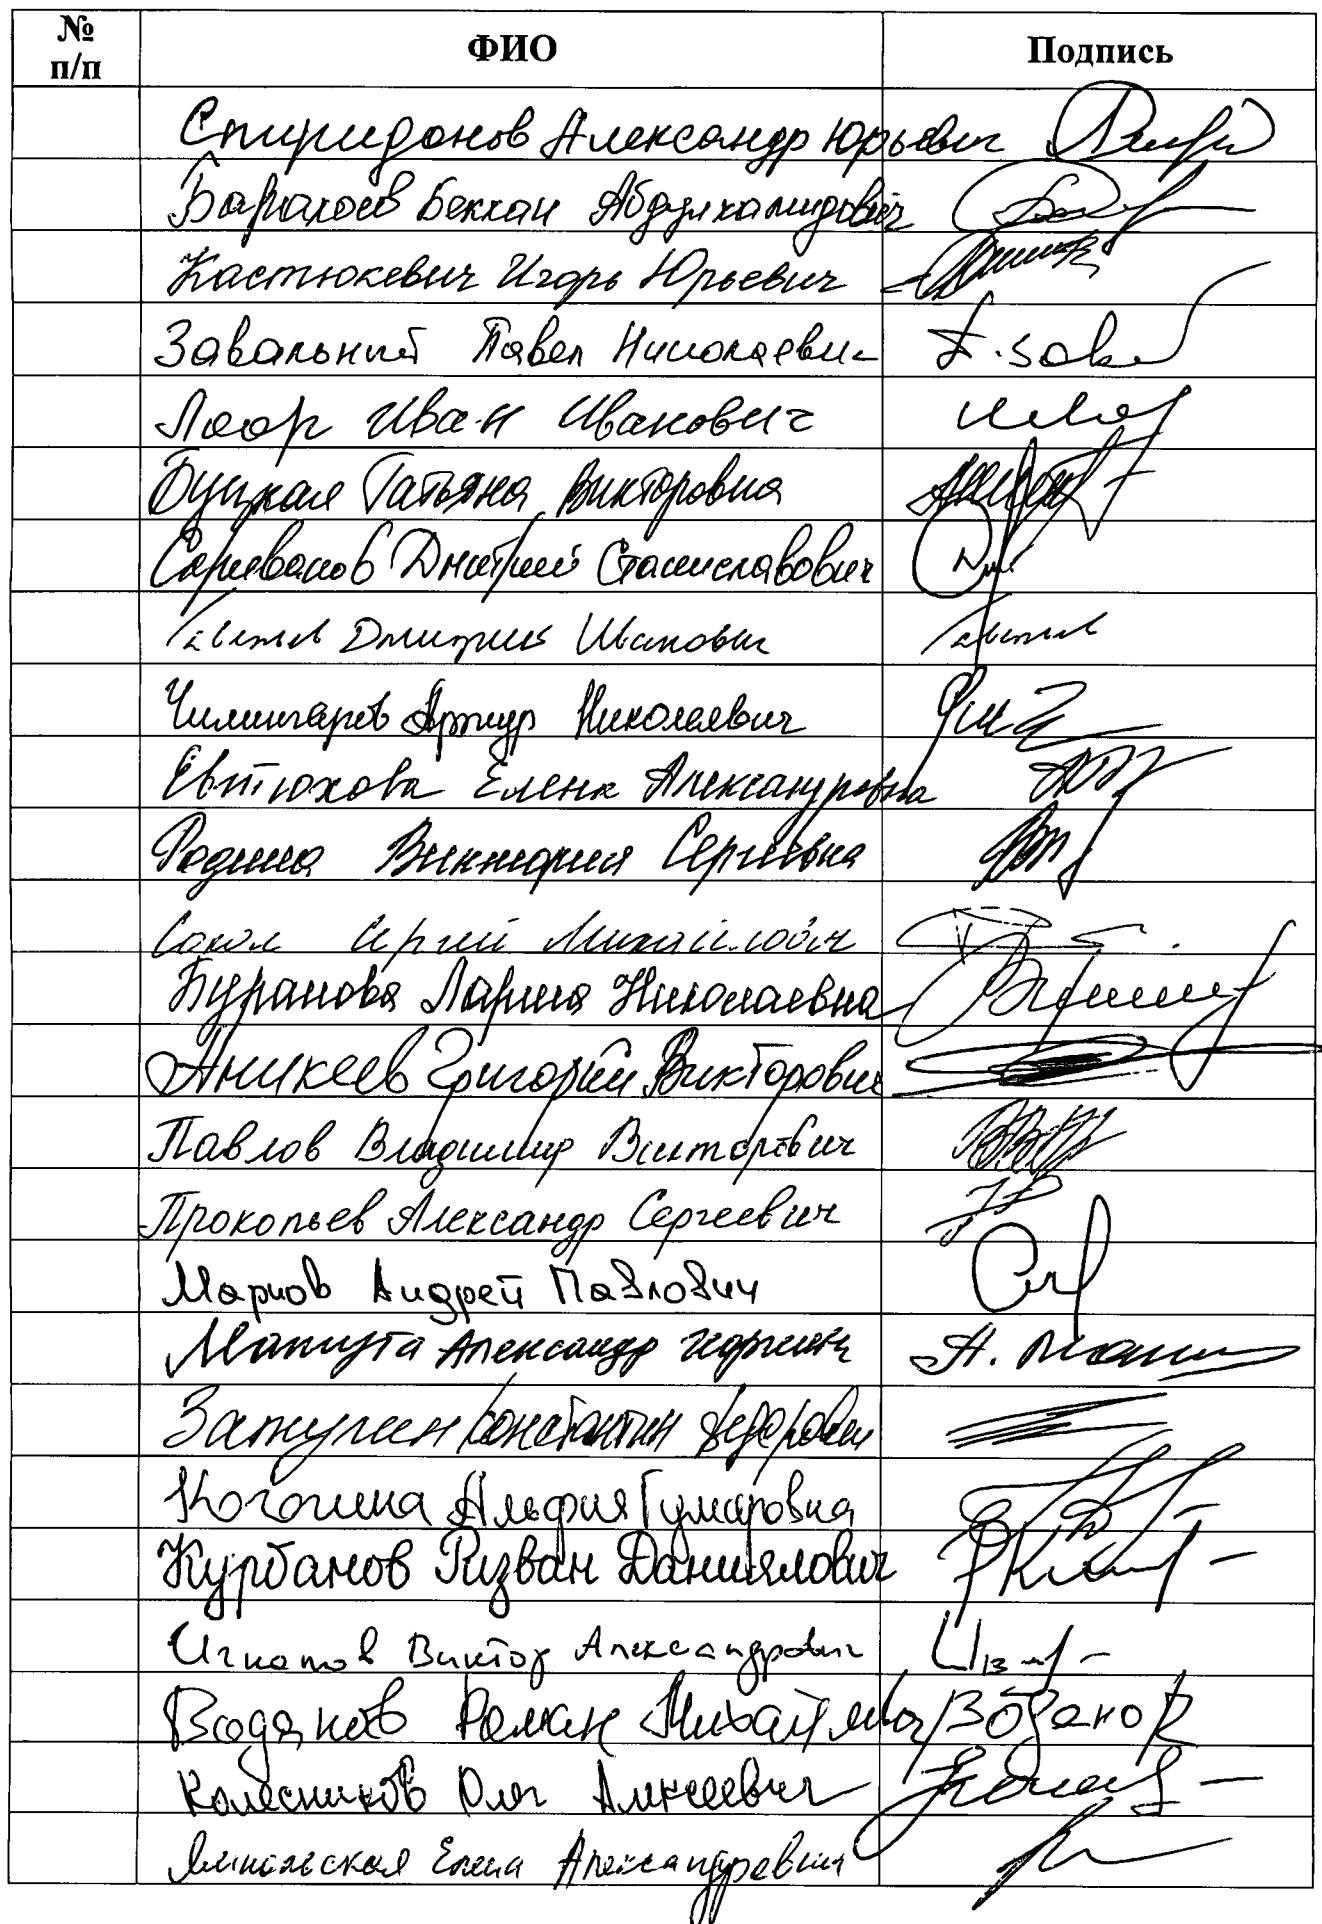 № п/п ФИО Подпись
Спиридонов Александр Юрьевич
Барахоев Бекхан Абдулхамидович
Кастюкевич Игорь Юрьевич
Завальный Павел Николаевич
Лоор Иван Иванович
Буцкая Татьяна Викторовна
Дмитрий Станиславович
Дмитрий Иванович
Чилингаров Артур Николаевич
Евтюхова Елена Александровна
Родина Виктория Сергеевна
Сокол Сергей Михайлович
Буранова Лариса Николаевна
Аникеев Григорий Викторович
Павлов Владимир Викторович
Прокопьев Александр Сергеевич
Марков Андрей Павлович
Мажуга Александр Георгиевич А.
Затулин Константин Федорович
Когогина Альфия Гумаровна
Курбанов Ризван Даниялович
Игнатов Виктор Александрович
Водянов Роман Михайлович
Колесников Олег Алексеевич
Ямпольская Елена Александровна